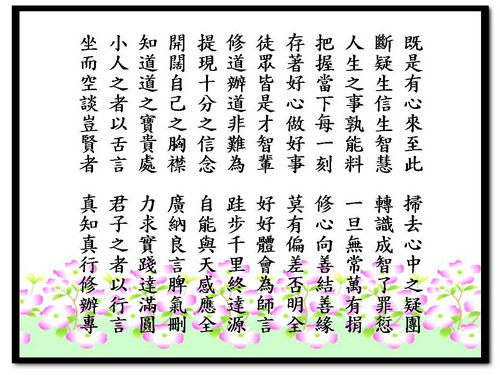 既是有心來至此 掃去心中之疑團
斷疑生信生智慧 轉識成智了罪愆
人生之事孰能料 一旦無常萬有捐
把握當下每一刻 修心向善結善緣
存著好心做好事 莫有偏差否明全
徒眾皆是才智輩 好好體會為師言
修道辦道非難為 跬步千里終達源
提現十分之信念 自能與天感應全
開闊自己之胸襟 廣納良言脾氣刪
知道道之寶貴處 力求實踐達滿圓
小人之者以舌言 君子之者以行言
坐而空談豈賢者 真知真行修辦專